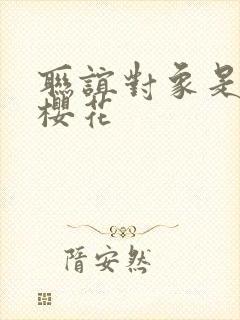 聯誼對象是
櫻花
隋安然